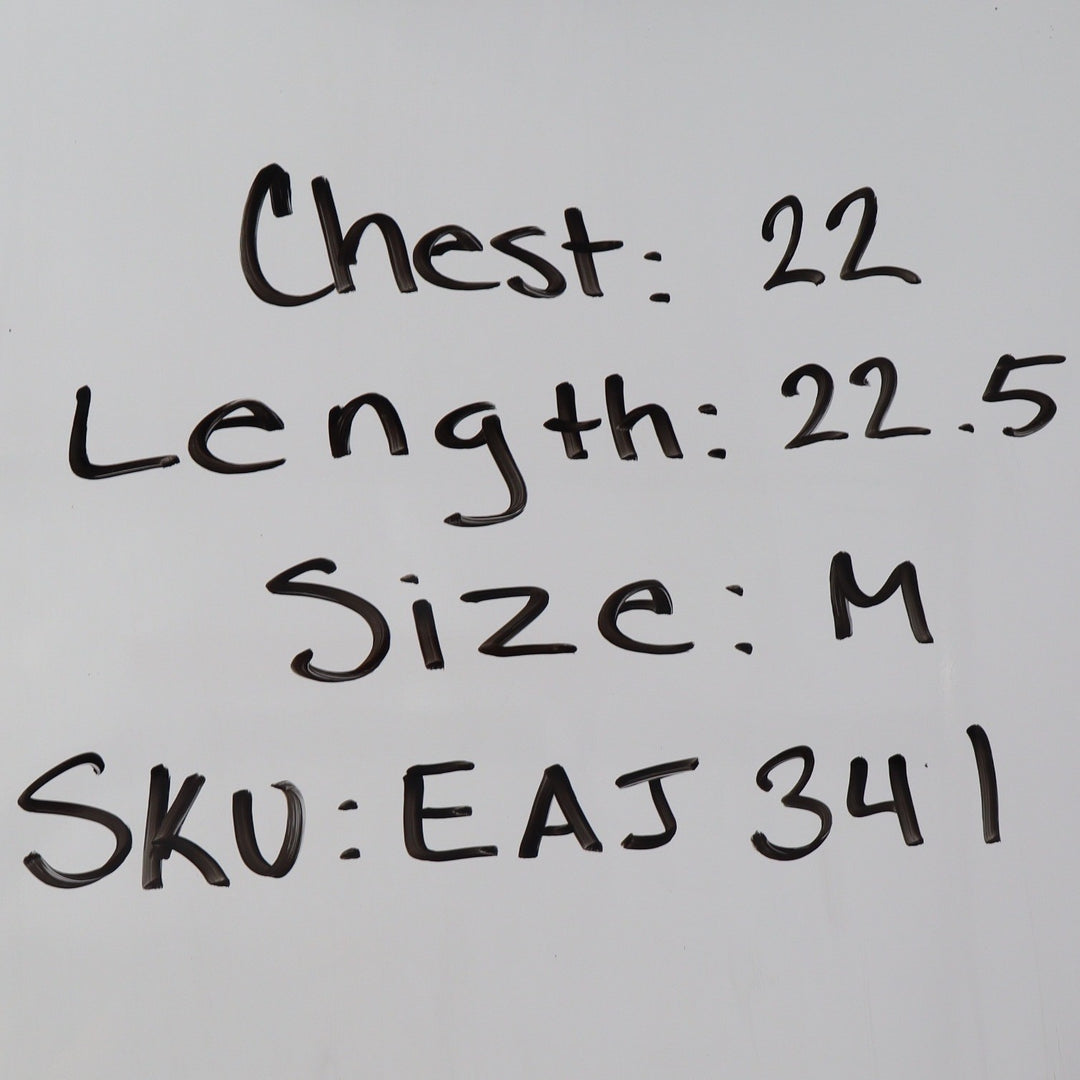 Chest: 22
Length: 22.5
Size: M
SKU: EAJ 341